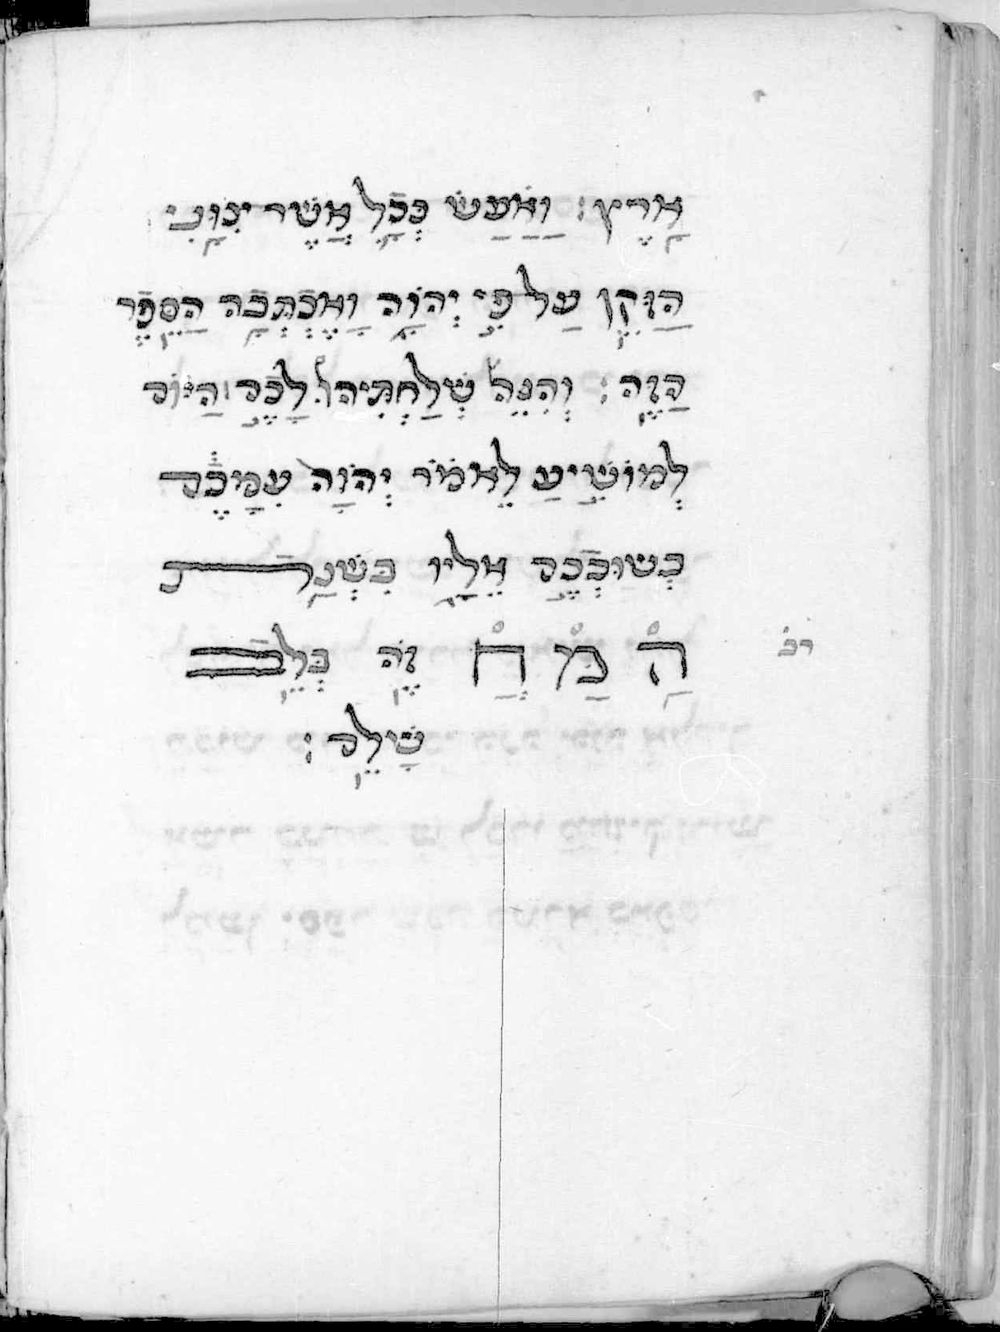 אָרֶץ : וַאַּעַשּ כְּכָֿל אֲשֶׁר יִצַוֻּנִי
הַזָּקֵן עַל פִּי יְהוָֹה וָאֶכְתְּבָֿה הַסֵּפֶֿר
הַזֶּה : וְהִנֵּה שְׁלַחְתִּיהוּ לָכֶֿם הַיּוֹם
לְמוֹשִׁיעַ לֵאמֹר יְהוָֹה עִמָּכֶֿם
בְּשׁוּבְֿכֶֿם אֵלָיו בִּשְׁנַֿת
הַ מַּ חֲ זֶה בְּלֵבֿ יבֿ
שָׁלֵם :